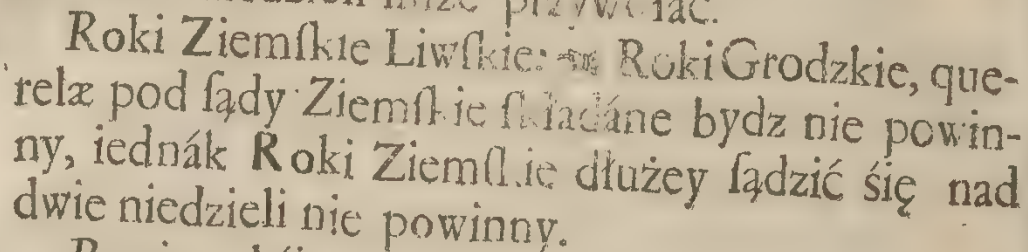 przywołac.
Roki Ziemſkie Liwſkie: Roki Grodzkie, que-
relæ pod ſądy Ziemſkie ſkładáne bydz nie powin-
ny, iednák Roki Ziemſkie dłużey ſądzić śię nad
dwie niedzieli nie powinny.